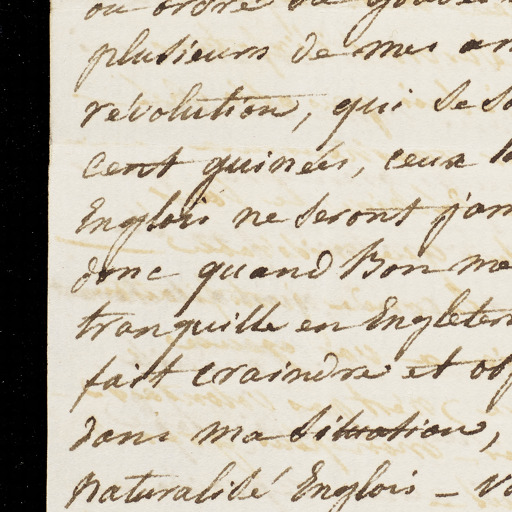 ou ordre du gouver
plusieurs de mes am
révolution, qui se so
cent guinées, ceux
Englois ne seront jam
donc quand Bon me
tranquille en Engleter
fait craindre et
dans ma situation,
naturalisé Englois –